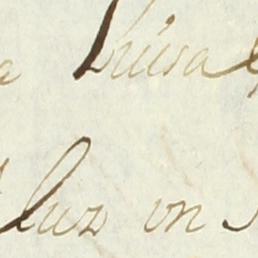 a Luisa
luz un